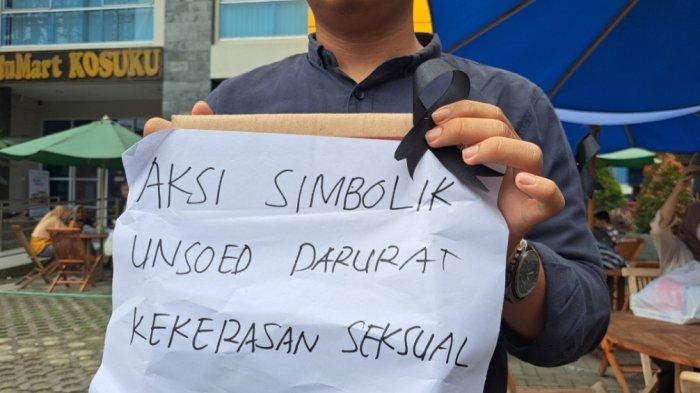 uMart KOSUKU
AKSI SIMBOLIK
UNSOED DARURAT
KEKERASAN SEKSUAL